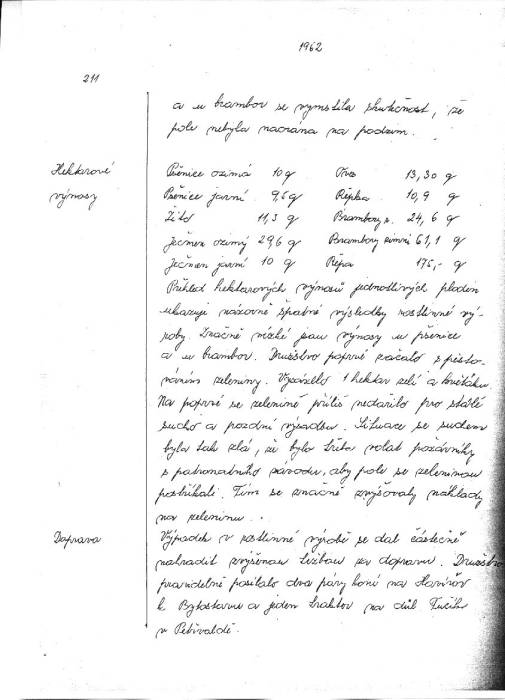 1962
211
a u brambor se vymstila skutečnost, že
pole nebyla naorána na podzim.
Hektarové
výnosy
Pšenice ozimá 10 q Oves 13,30 q
Pšenice jarní 9,6 q Řepka 10,9 q
Žito 11,3 q Brambory r. 24,6 q
Ječmen ozimý 29,6 q Brambory zimní 61,1 q
Ječmen jarní 10 q Řepa 175,- q
Přehled hektarových výnosů jednotlivých plodin
ukazuje názorně špatné výsledky rostlinné vý-
roby. Značně nízké jsou výnosy u pšenice
a u brambor. Družstvo poprvé začalo s pěsto-
váním zeleniny. Vysázelo 1 hektar zelí a květáku.
Na poprvé se zelenině příliš nedařilo pro stálé
sucho a pozdní výsadbu. Situace se suchem
byla tak zlá, že bylo třeba volat požárníky
s patronátního závodu, aby pole se zeleninou
postříkali. Tím se značně zvyšovaly náklady
na zeleninu.
Doprava
Výpadek v rostlinné výrobě se dal částečně
nahradit zvýšenou tržbou za dopravu. Družstvo
pravidelně posílalo dva páry koní na Havířov
k Bytostavu a jeden traktor na důl Fučík
v Petřvaldě.